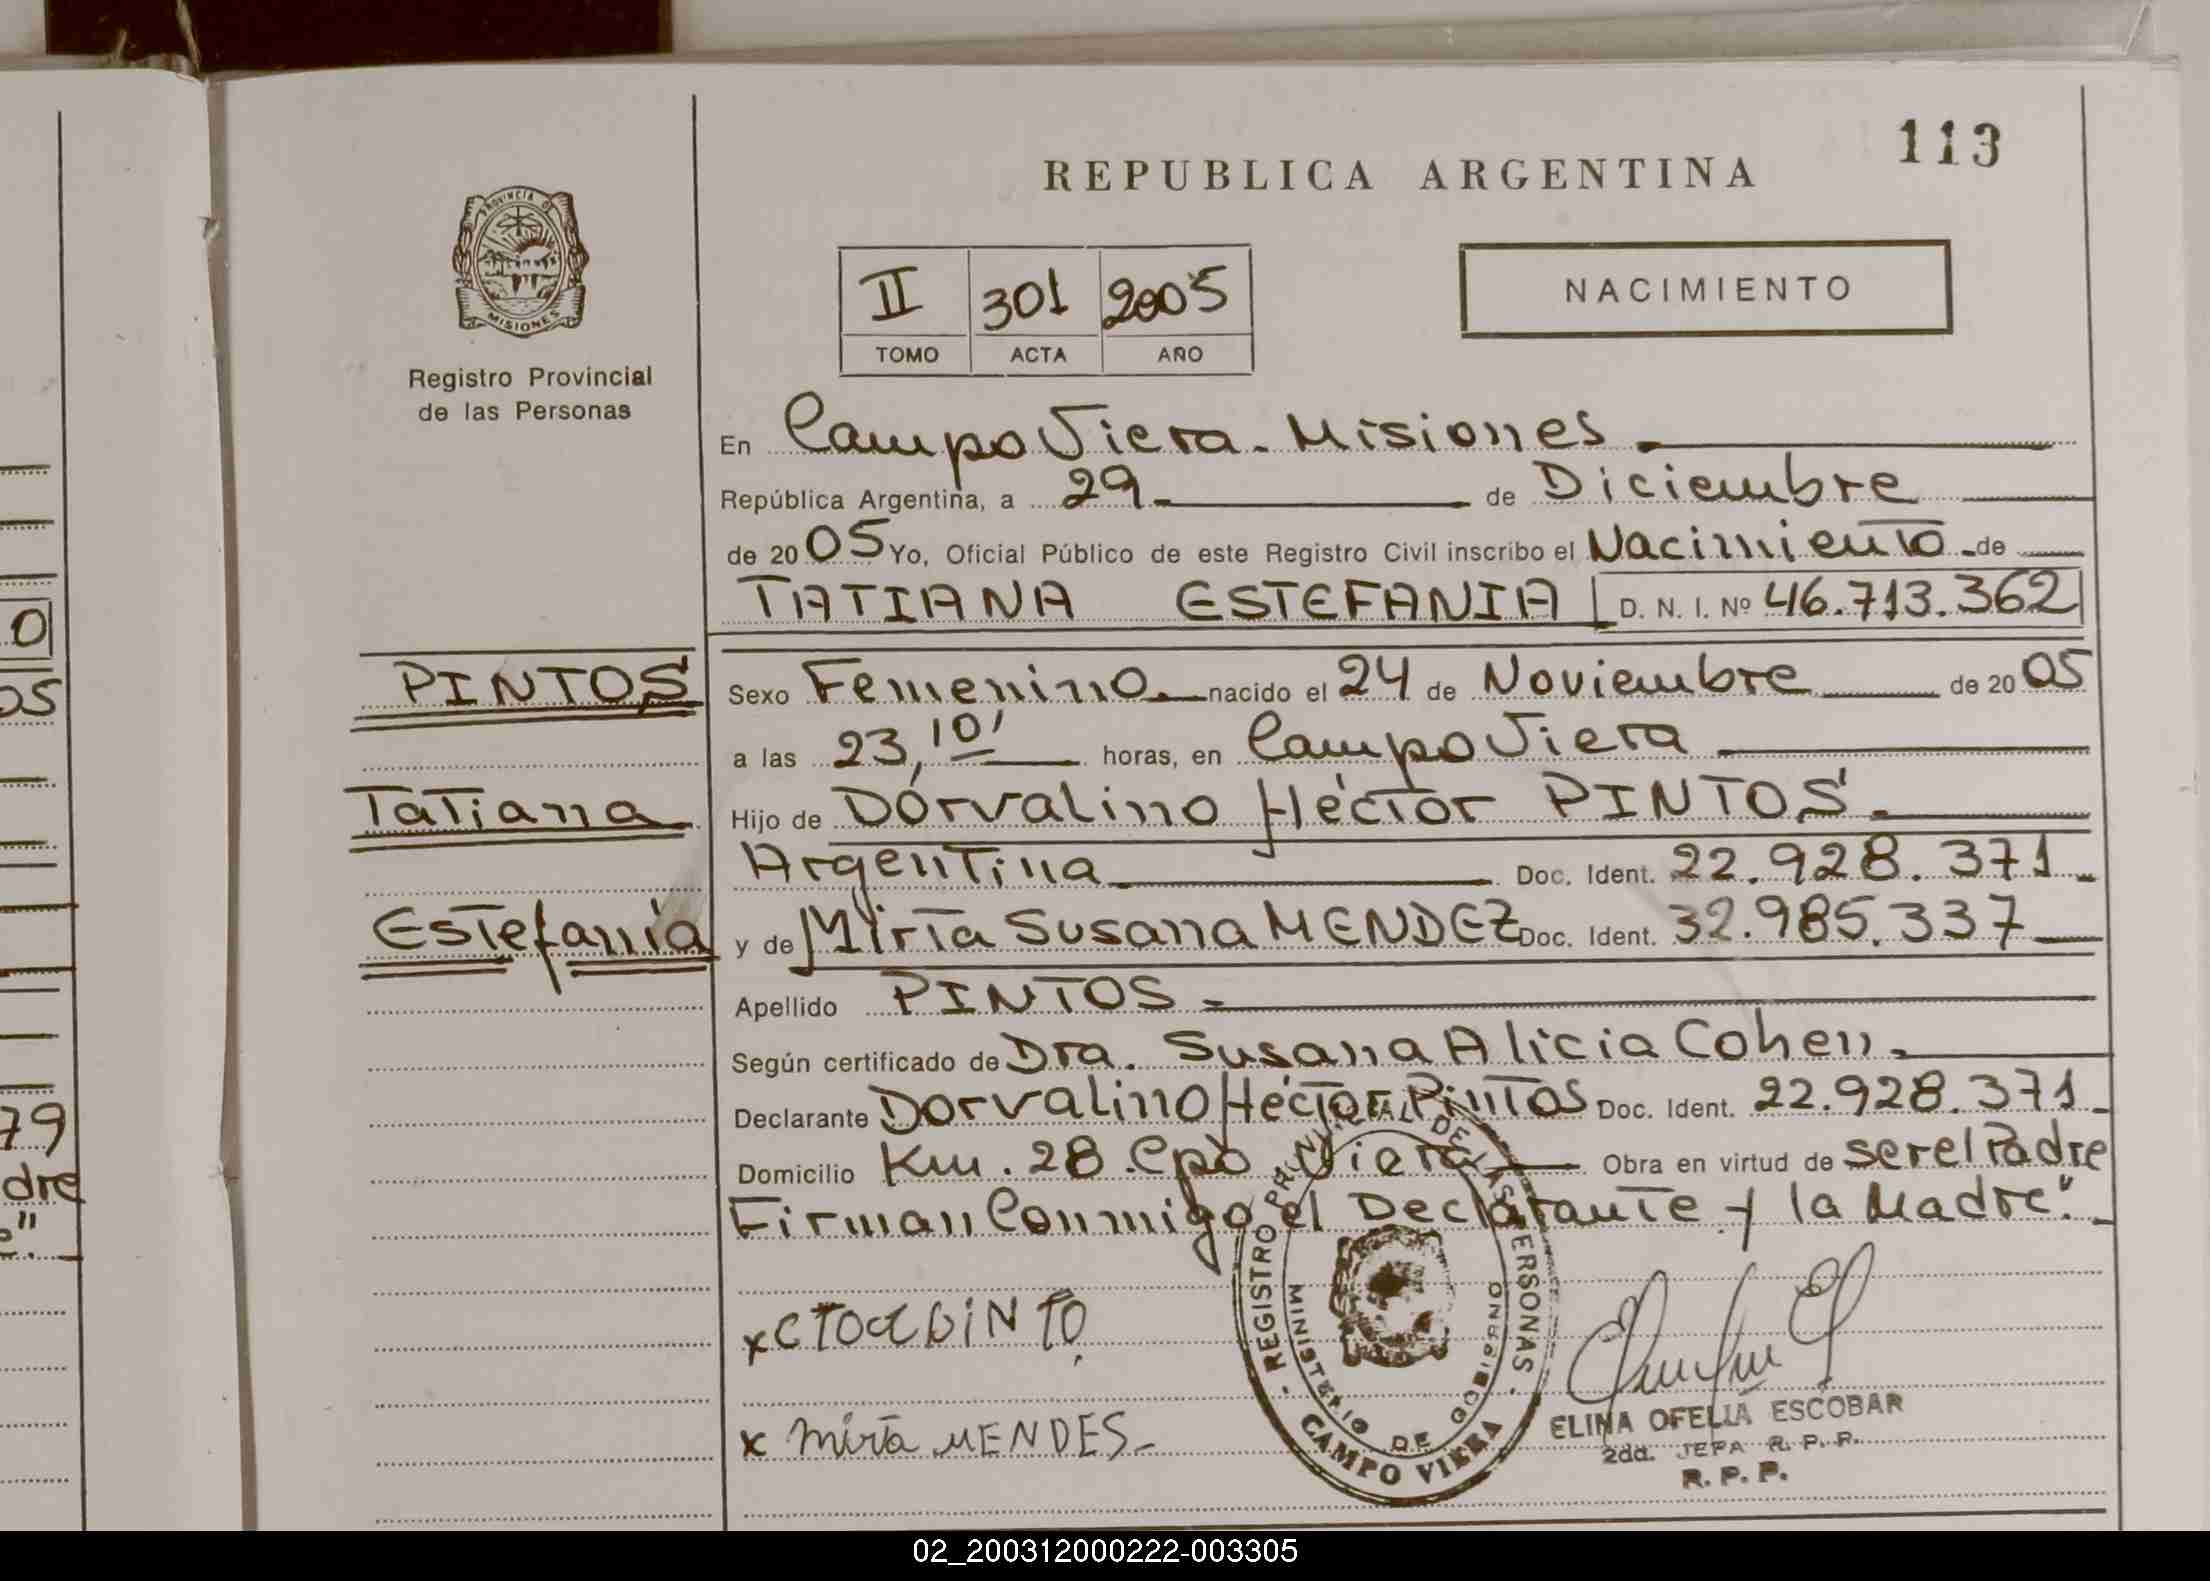 113
REPUBLICA ARGENTINA
PROVINCIA DE
MISIONES
Registro Provincial
de las Personas
II 301 2005
TOMO ACTA AÑO
NACIMIENTO
En Campo Viera - Misiones
República Argentina, a 29 de Diciembre
de 2005 Yo, Oficial Público de este Registro Civil inscribo el Nacimiento de
TATIANA ESTEFANIA D. N. I. Nº 46.713.362
PINTOS
Tatiana
Estefania
Sexo Femenino nacido el 24 de Noviembre de 2005
a las 23,10' horas, en Campo Viera
Hijo de Dorvalino Héctor PINTOS.
Argentina Doc. Ident. 22.928.371
y de Mirta Susana MENDEZ Doc. Ident. 32.985.337
Apellido PINTOS
Según certificado de Dra. Susana Alicia Cohen.
Declarante Dorvalino Héctor Pintos Doc. Ident. 22.928.371.
Domicilio Km. 28. Cpo Viera Obra en virtud de ser el Padre
Firman Conmigo el Declarante y la Madre".
REGISTRO PROVINCIAL DE LAS PERSONAS
MINISTERIO DE GOBIERNO
CAMPO VIERA
x Mirta MENDES
ELINA OFELIA ESCOBAR
2da. JEFA R. P. P.
R. P. P.
0
05
79
dre
02_200312000222-003305